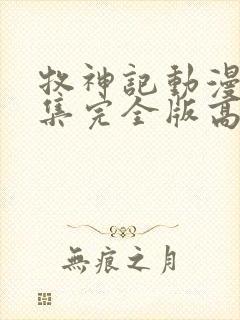 牧神記動漫
集完全版高
無痕之月